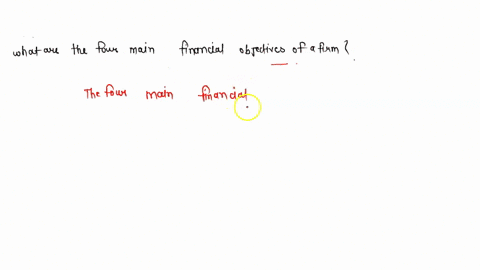 what are the four main financial objectives of a firm?
The four main financial